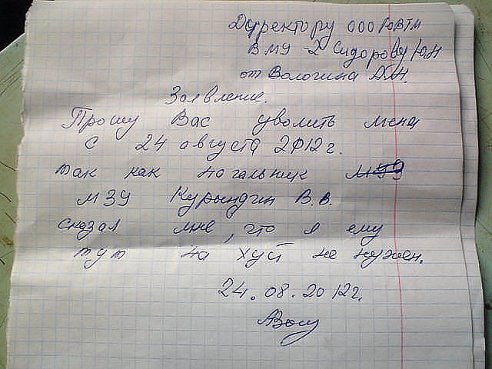 Директору ООО РОВТМ
ВМУ-2 Сидорову ЮН
от Вологина А.Н.
Заявление.
Прошу Вас уволить меня
с 24 августа 2012г.
так как начальник
МЗУ Курындин В.В.
сказал мне, что я ему
тут на хуй не нужен.
24.08.2012г.